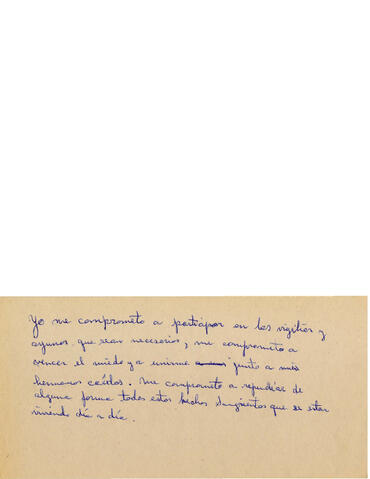 Yo me comprometo a participar en las vigilias y
ayunos que sean necesarios, me comprometo a
vencer el miedo y a unirme junto a mis
hermanos caídos. Me comprometo a repudiar de
alguna forma todos estos hechos sangrientos que se estan
viviendo día a día.